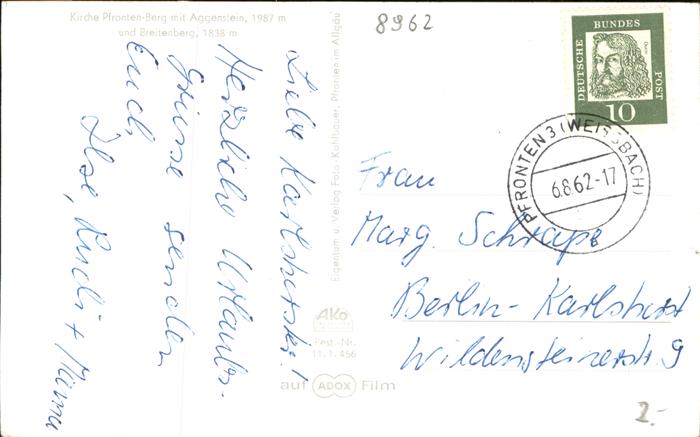 Kirche Pfronten-Berg mit Aggenstein, 1987 m
und Breitenberg, 1838 m
8962
DEUTSCHE
BUNDES
POST
Dürer
10
PFRONTEN 3 (WEISSBACH)
6.8.62-17
Liebe Karlshorster!
Herzliche Urlaubs-
grüsse senden
Euch,
Ilse, Rudi + Mama
Eigentum u. Verlag Foto-Kohlbauer, Pfronten im Allgäu
AKo
Best.-Nr.
11.1.466
auf ADOX Film
Frau
Marg. Schrape
Berlin-Karlshorst
Wildensteinerstr. 9
2.-